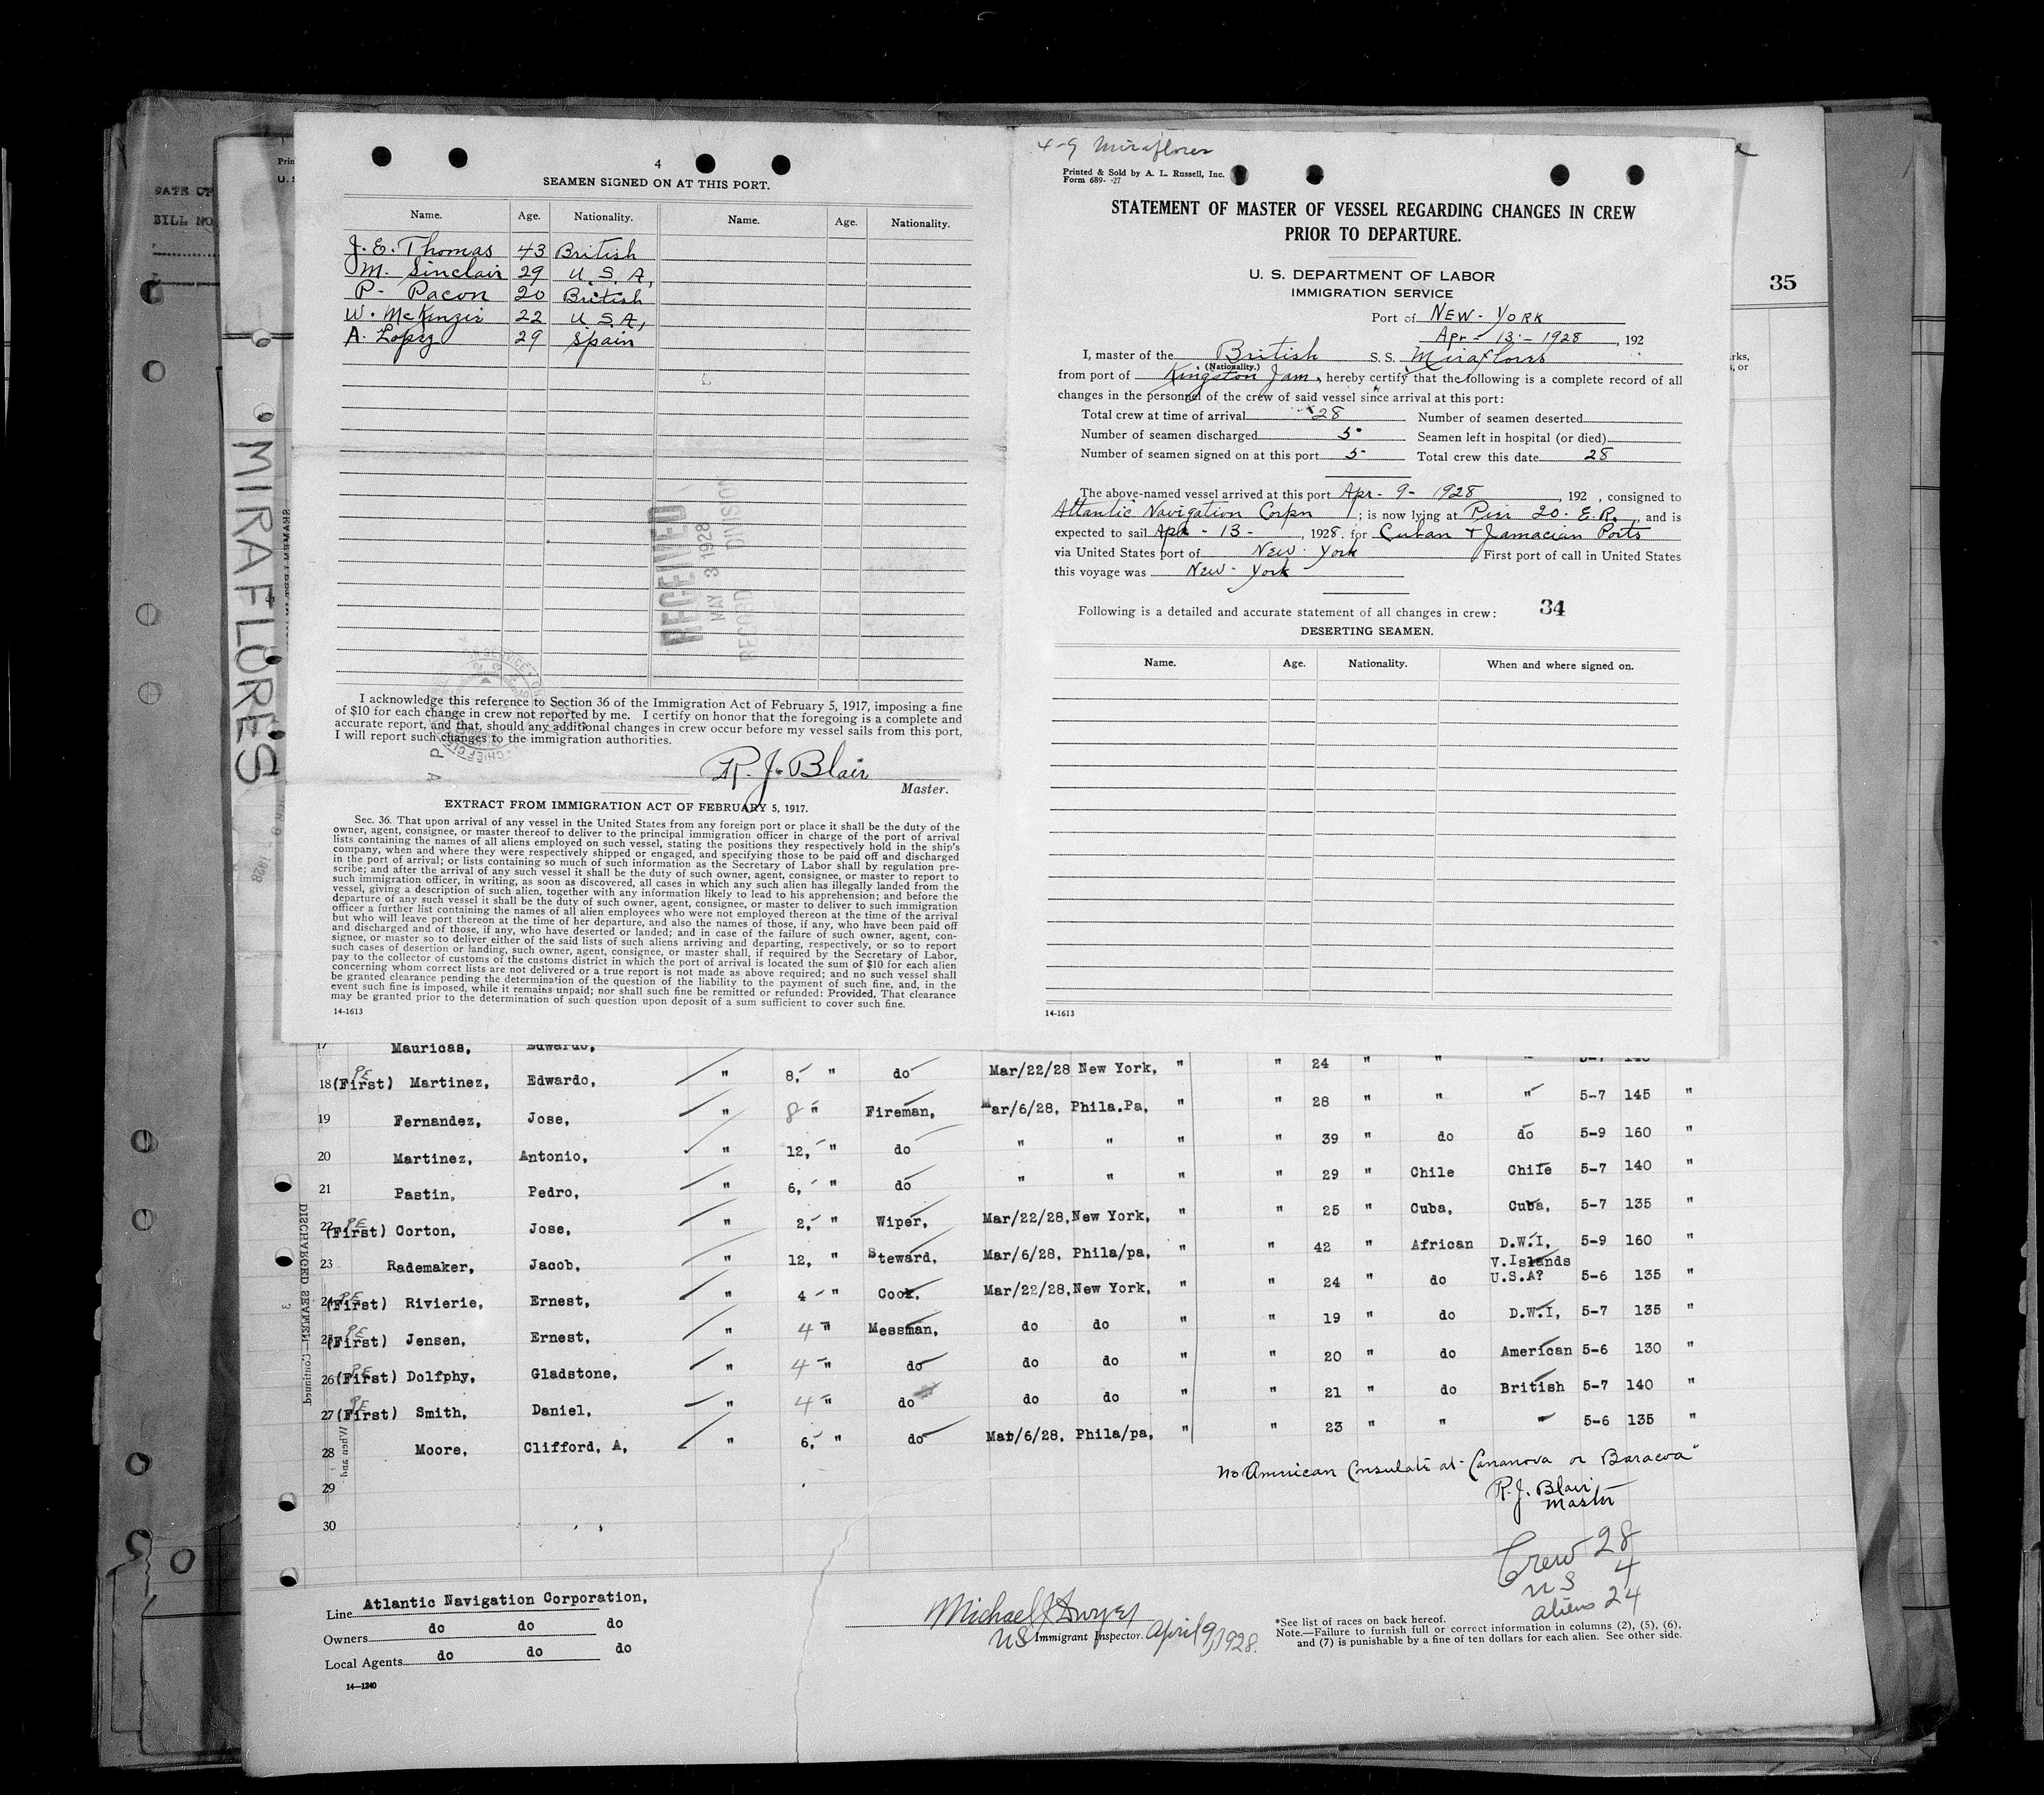 4
SEAMEN SIGNED ON AT THIS PORT.
Name. Age. Nationality. Name. Age. Nationality.
J. E. Thomas 43 British
M. Sinclair 29 U. S. A,
P. Pacon 20 British
W. McKenzie 22 U. S. A,
A. Lopez 29 Spain
RECEIVED
MAY 3 1928
RECORD DIVISION
I acknowledge this reference to Section 36 of the Immigration Act of February 5, 1917, imposing a fine
of $10 for each change in crew not reported by me. I certify on honor that the foregoing is a complete and
accurate report, and that, should any additional changes in crew occur before my vessel sails from this port,
I will report such changes to the immigration authorities.
R. J. Blair
Master.
EXTRACT FROM IMMIGRATION ACT OF FEBRUARY 5, 1917.
Sec. 36. That upon arrival of any vessel in the United States from any foreign port or place it shall be the duty of the
owner, agent, consignee, or master thereof to deliver to the principal immigration officer in charge of the port of arrival
lists containing the names of all aliens employed on such vessel, stating the positions they respectively hold in the ship's
company, when and where they were respectively shipped or engaged, and specifying those to be paid off and discharged
in the port of arrival; or lists containing so much of such information as the Secretary of Labor shall by regulation pre-
scribe; and after the arrival of any such vessel it shall be the duty of such owner, agent, consignee, or master to report to
such immigration officer, in writing, as soon as discovered, all cases in which any such alien has illegally landed from the
vessel, giving a description of such alien, together with any information likely to lead to his apprehension; and before the
departure of any such vessel it shall be the duty of such owner, agent, consignee, or master to deliver to such immigration
officer a further list containing the names of all alien employees who were not employed thereon at the time of the arrival
but who will leave port thereon at the time of her departure, and also the names of those, if any, who have been paid off
and discharged and of those, if any, who have deserted or landed; and in case of the failure of such owner, agent, con-
signee, or master so to deliver either of the said lists of such aliens arriving and departing, respectively, or so to report
such cases of desertion or landing, such owner, agent, consignee, or master shall, if required by the Secretary of Labor,
pay to the collector of customs of the customs district in which the port of arrival is located the sum of $10 for each alien
concerning whom correct lists are not delivered or a true report is not made as above required; and no such vessel shall
be granted clearance pending the determination of the question of the liability to the payment of such fine, and, in the
event such fine is imposed, while it remains unpaid; nor shall such fine be remitted or refunded: Provided, That clearance
may be granted prior to the determination of such question upon deposit of a sum sufficient to cover such fine.
14-1613
4-9 Miraflores
Printed & Sold by A. L. Russell, Inc.
Form 689- -27
STATEMENT OF MASTER OF VESSEL REGARDING CHANGES IN CREW
PRIOR TO DEPARTURE.
U. S. DEPARTMENT OF LABOR
IMMIGRATION SERVICE
Port of NEW-YORK
Apr - 13 - 1928, 192
I, master of the British S. S. Miraflores
(Nationality.)
from port of Kingston Jam, hereby certify that the following is a complete record of all
changes in the personnel of the crew of said vessel since arrival at this port:
Total crew at time of arrival 28 Number of seamen deserted
Number of seamen discharged 5 Seamen left in hospital (or died)
Number of seamen signed on at this port 5 Total crew this date 28
The above-named vessel arrived at this port Apr - 9 - 1928, 192 , consigned to
Atlantic Navigation Corpn; is now lying at Pier 20. E.R., and is
expected to sail Apr - 13 -, 1928. for Cuban & Jamacian Ports
via United States port of New York First port of call in United States
this voyage was New - York
Following is a detailed and accurate statement of all changes in crew: 34
DESERTING SEAMEN.
Name. Age. Nationality. When and where signed on.
14-1613
35
DATE OF
BILL NO
MIRAFLORES
17 Mauricas, Edwardo,
18 (First) PE Martinez, Edwardo, " 8, " do Mar/22/28 New York, " " 24 " " "
19 Fernandez, Jose, " 8 " Fireman, Mar/6/28, Phila.Pa, " " 28 " " " 5-7 145 "
20 Martinez, Antonio, " 12, " do " " " " 39 " do do 5-9 160 "
21 Pastin, Pedro, " 6, " do " " " " 29 " Chile Chile 5-7 140 "
22 (First) PE Corton, Jose, " 2, " Wiper, Mar/22/28, New York, " " 25 " Cuba, Cuba, 5-7 135 "
23 Rademaker, Jacob, " 12, " Steward, Mar/6/28, Phila/pa, " " 42 " African D.W.I, 5-9 160 "
24 (First) PE Rivierie, Ernest, " 4 " Cook, Mar/22/28, New York, " " 24 " do V.Islands U.S.A? 5-6 135 "
25 (First) PE Jensen, Ernest, " 4 " Messman, do do " " 19 " do D.W.I, 5-7 135 "
26 (First) PE Dolfphy, Gladstone, " 4 " do do do " " 20 " do American 5-6 130 "
27 (First) PE Smith, Daniel, " 4 " do do do " " 21 " do British 5-7 140 "
28 Moore, Clifford, A, " 6, " do Mat/6/28, Phila/pa, " " 23 " " " 5-6 135 "
29
30
DISCHARGED SEAMEN—Continued.
When and
3
No American Consulate at Cananova or Baracoa"
R. J. Blair
Master
Crew 28
US 4
aliens 24
Line Atlantic Navigation Corporation,
Owners do do do
Local Agents do do do
14—1240
Michael J Dwyer
US Immigrant Inspector. April 9, 1928.
*See list of races on back hereof.
Note.—Failure to furnish full or correct information in columns (2), (5), (6),
and (7) is punishable by a fine of ten dollars for each alien. See other side.